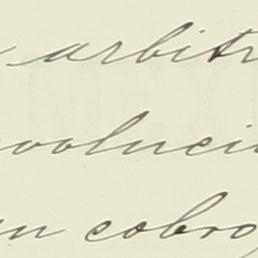 arbitr
voluci
un cobro